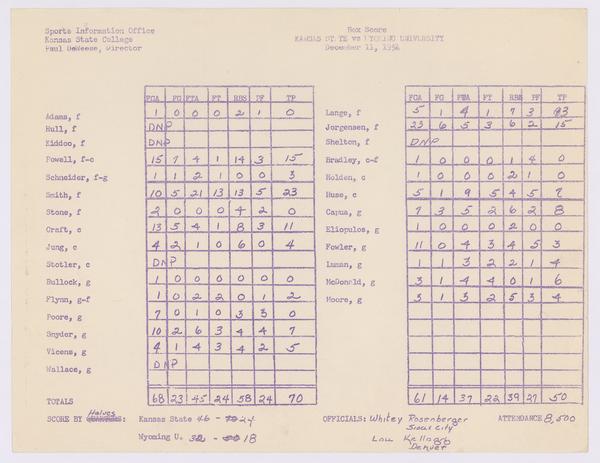 Sports Information Office
Kansas State College
Paul DeWeese, Director
Box Score
KANSAS STATE vs WYOMING UNIVERSITY
December 11, 1954
FGA FG FTA FT RBS PF TP
Adams, f 1 0 0 0 2 1 0
Hull, f DNP
Kiddoo, f DNP
Powell, f-c 15 7 4 1 14 3 15
Schneider, f-g 1 1 2 1 0 0 3
Smith, f 10 5 21 13 13 5 23
Stone, f 2 0 0 0 4 2 0
Craft, c 13 5 4 1 8 3 11
Jung, c 4 2 1 0 6 0 4
Stotler, c DNP
Bullock, g 1 0 0 0 0 0 0
Flynn, g-f 1 0 2 2 0 1 2
Poore, g 7 0 1 0 3 3 0
Snyder, g 10 2 6 3 4 4 7
Vicens, g 4 1 4 3 4 2 5
Wallace, g DNP
TOTALS 68 23 45 24 58 24 70
FGA FG FTA FT RBS PF TP
Lange, f 5 1 4 1 7 3 3
Jorgensen, f 23 6 5 3 6 2 15
Shelton, f DNP
Bradley, c-f 1 0 0 0 1 4 0
Holden, c 1 0 0 0 2 1 0
Huse, c 5 1 9 5 4 5 7
Capua, g 7 3 5 2 6 2 8
Eliopulos, g 1 0 0 0 2 0 0
Fowler, g 11 0 4 3 4 5 3
Luman, g 1 1 3 2 2 1 4
McDonald, g 3 1 4 4 0 1 6
Moore, g 3 1 3 2 5 3 4
61 14 37 22 39 27 50
SCORE BY Halves: Kansas State 46 - 24
Wyoming U. 32 - 18
OFFICIALS: Whitey Rosenberger
Sioux City
Lou Kellogg
Denver
ATTENDANCE 8,500